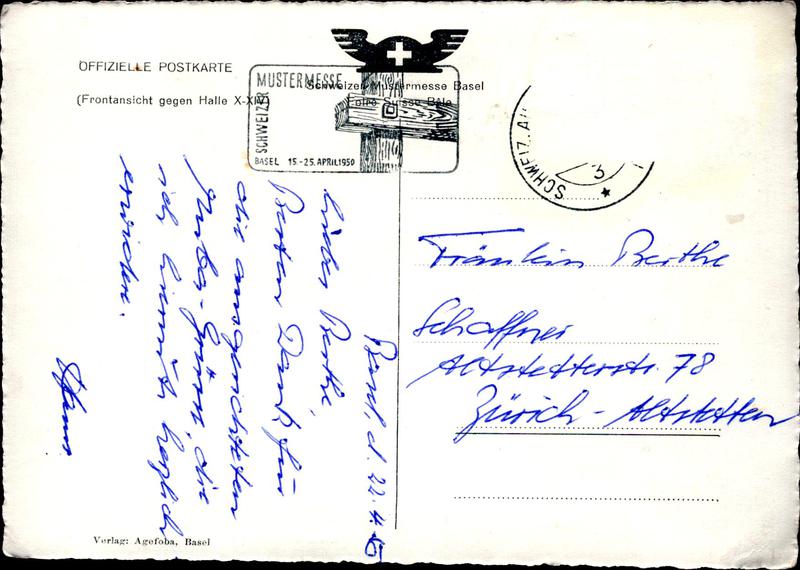 OFFIZIELLE POSTKARTE
(Frontansicht gegen Halle X-XIV)
Schweizer Mustermesse Basel
Foire Suisse Bâle
SCHWEIZER
MUSTERMESSE
BASEL 15.-25. APRIL 1950
SCHWEIZ. AU
5
Basel, d. 22.4.
Liebes Berthe,
Besten Dank für
die ausgerichteten
Grüsse, die
ich hiermit herzlich
erwidere.
Hans
Fräulein Berthe
Schaffner
Altstetterstr. 78
Zürich-Altstetten
Verlag: Agefoba, Basel